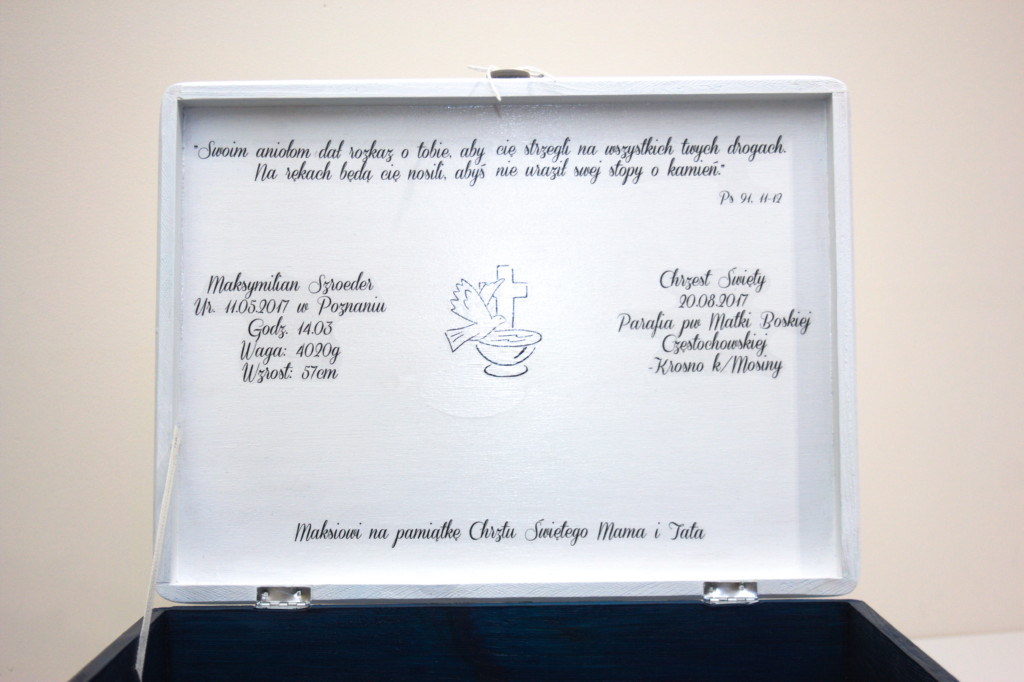 "Swoim aniołom dał rozkaz o tobie, aby cię strzegli na wszystkich twych drogach.
Na rękach będą cię nosili, abyś nie uraził swej stopy o kamień."
Ps 91, 11-12
Maksymilian Szroeder
Ur. 11.05.2017 w Poznaniu
Godz. 14.03
Waga: 4020g
Wzrost: 57cm
Chrzest Święty
20.08.2017
Parafia pw Matki Boskiej
Częstochowskiej
-Krosno k/Mosiny
Maksiowi na pamiątkę Chrztu Świętego Mama i Tata